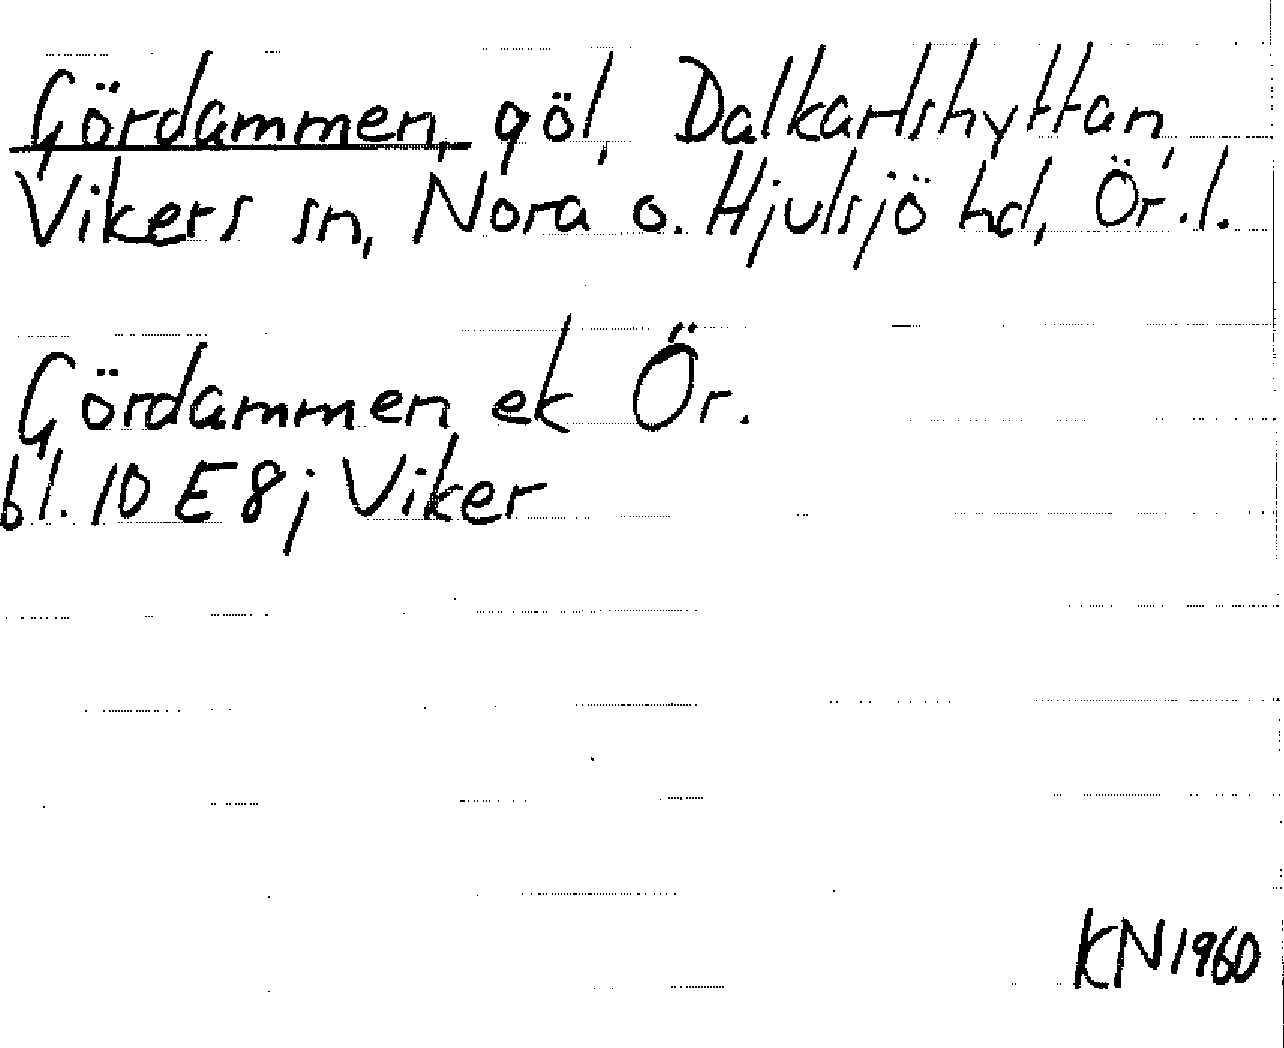 Gördammen, göl, Dalkarlshyttan,
Vikers sn, Nora o. Hjulsjö hd, Ör. l.
Gördammen ek Ör.
bl. 10 E 8 j Viker
KN 1960